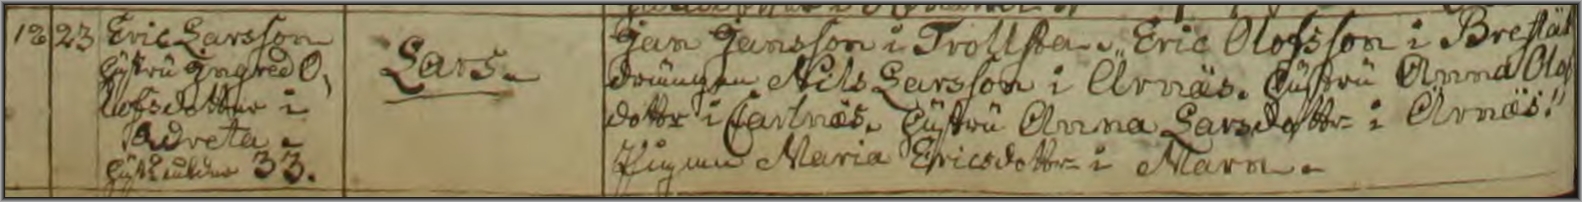 18 23 Eric Larsson
hustru Ingred O,
lofsdotter i
Adreta.
hust: ålder 33.
Lars.
Jan Jansson i Trollsta. Eric Olofsson i Brestäl
Drängen Nils Larsson i Arnäs. hustru Anna Olofs
dotter i Carlnäs. hustru Anna Larsdotter i Arnäs.
Pigan Maria Ericsdotter i Marn.